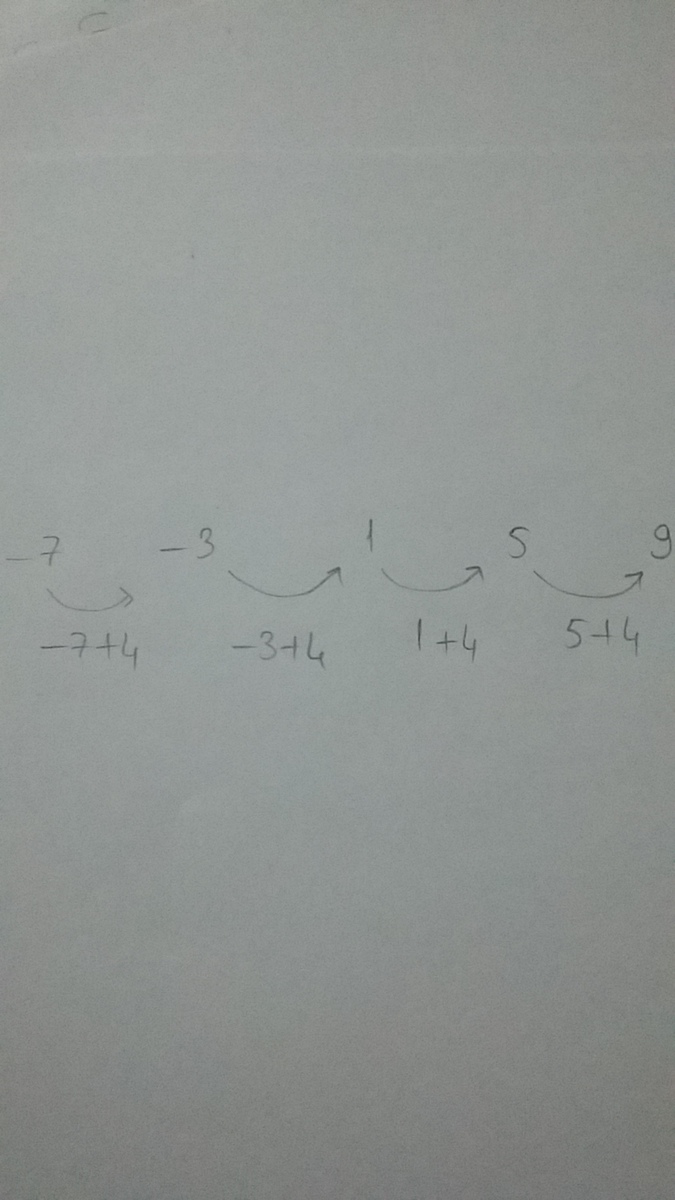 -7 -3 1 5 9
-7+4 -3+4 1+4 5+4